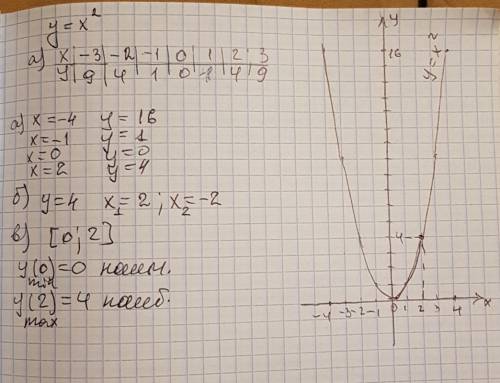 y = x²
а) x | -3 | -2 | -1 | 0 | 1 | 2 | 3
y | 9 | 4 | 1 | 0 | 1 | 4 | 9
а) x = -4 y = 16
x = -1 y = 1
x = 0 y = 0
x = 2 y = 4
б) y = 4 x₁ = 2; x₂ = -2
в) [0; 2]
y(0) = 0 наим.
min
y(2) = 4 наиб.
max
y
16
y = x²
4
-4 -3 -2 -1 0 1 2 3 4 x